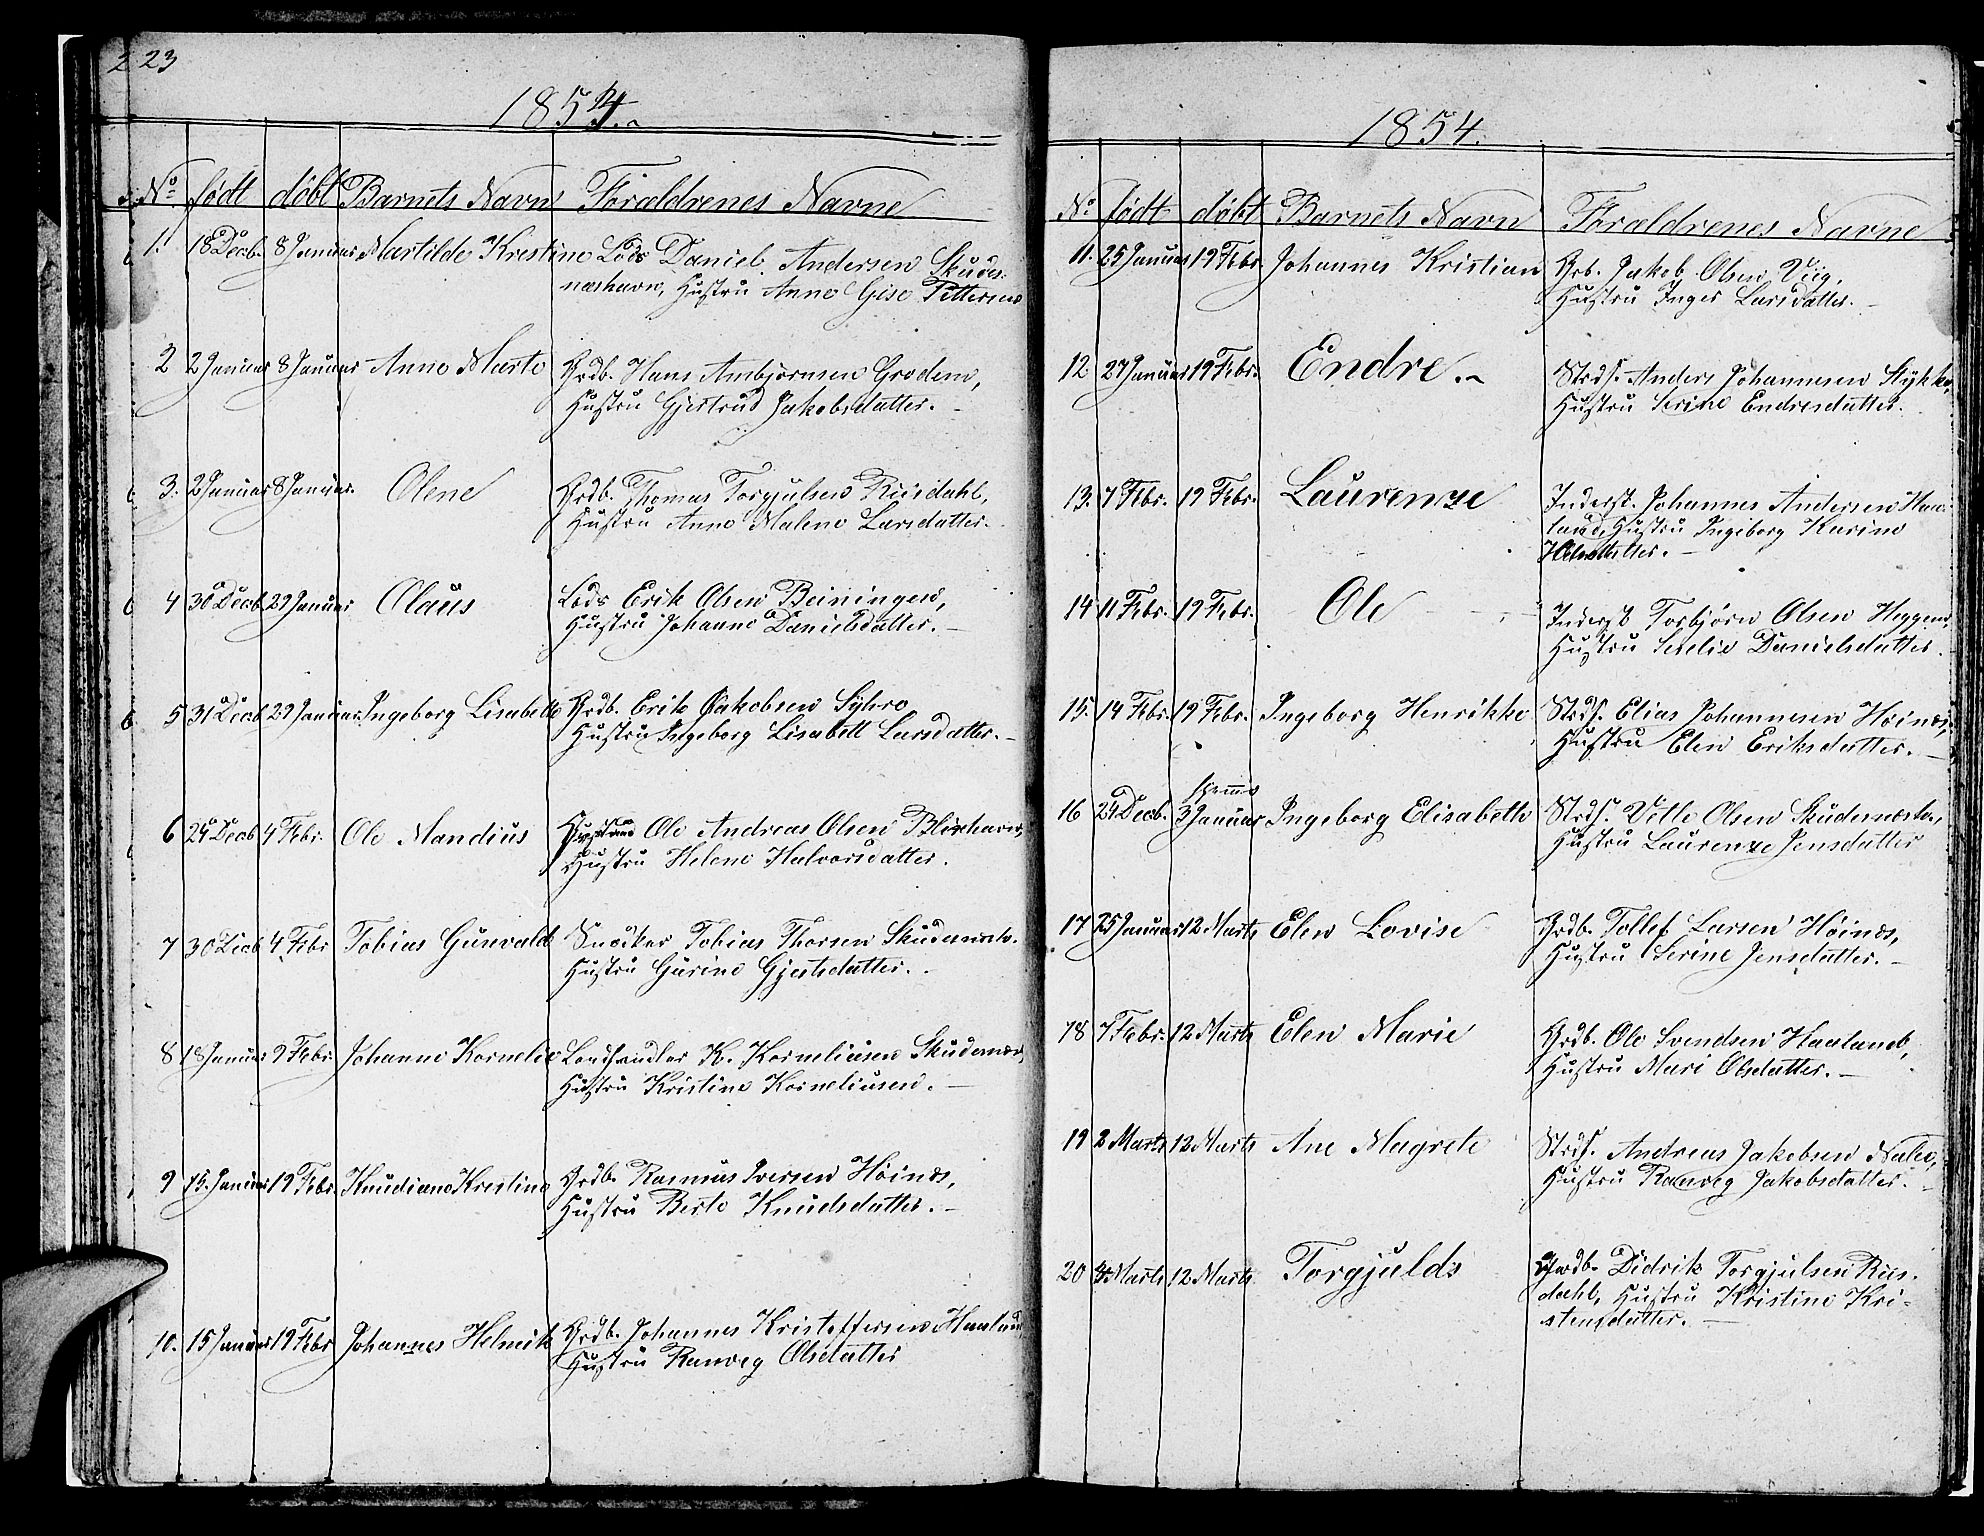 223
1854.
No født døbt Barnets Navn Forældrenes Navne
1. 18 Decb. 8 Januar Martilde Krestine Lods Daniel Andersen Skudes-
neshavn, Hustru Anne Gise Pettersen
2 2 Januar 8 Januar Anne Marte Grdb. Hans Ambjørnsen Grodem,
Hustru Gjertrud Jakobsdatter.
3. 2 Januar 8 Januar. Olene Grdb. Thomas Torgjulsen Riisdahl,
Hustru Anne Malene Larsdatter.
4 30 Decb. 29 Januar Olaus Lods Erik Olsen Beiningen,
Hustru Johanne Danielsdatter.
5 31 Decb 29 Januar Ingeborg Lisabette Grdb. Erik Jakobsen Syhro
Hustru Ingeborg Lisabett Larsdatter.
6 29 Decb 4 Febr. Ole Mandius Ole Andreas Olsen
Hustru Helene Halvorsdatter.
7 30 Decb 4 Febr Tobias Gunvald Snedker Tobias Thorsen Skudenesh.
Hustru Gurine Gjertsdatter.
8 18 Januar 9 Febr. Johanne Kornelie Landhandler K. Korneliusen Skudenes,
Hustru Kristine Korneliusen.
9 15. Januar 19 Febr. Knudiane Krestine Grdb. Rasmus Iversen Høines,
Hustru Berte Knudsdatter.
10. 15 Januar 19 Febr Johannes Helmik Grdb. Johannes Kristoffersen Haaland
Hustru Ranveg Olsdatter
1854.
No født døbt Barnets Navn Forældrenes Navne
11. 25 Januar 19 Febr. Johannes Kristian Grb. Jakob Olsen Viig,
Hustru Inger Larsdatter.
12. 27 Januar 19 Febr. Endre. Strds. Anders Johannesen Stykke,
Hustru Serine Endresdatter.
13. 7 Febr. 19 Febr. Laurenze Inderst. Johannes Andersen Haa-
land, Hustru Ingeborg Karine

14 11 Febr. 19 Febr. Ole Inderst Torbjørn Olsen Heggem,
Hustru Serelie Danielsdatter.
15. 14 Febr. 19 Febr. Ingeborg Henrikke Strds. Elias Johannesen Høines,
Hustru Elen Eriksdatter.
16 24 Decb. hjemme 3 Januar Ingeborg Elisabeth Strds. Vetle Olsen
Hustru Laurenze Jensdatter
17 25 Januar 12 Marts Elen Lovise Grdb. Tollef Larsen Høines,
Hustru Serine Jensdatter.
18 7 Febr. 12 Marts Elen Marie Grdb. Ole Svendsen Haaland,
Hustru Mari Olsdatter.
19 2 Marts 12 Marts Ane Magrete Strds. Andreas Jakobsen
Hustru Ranveg Jakobsdatter.
20 4 Marts 12 Marts Torgjulds Grdb. Didrik Torgjulsen Riis-
dahl, Hustru Kristine Kri-
stensdatter.